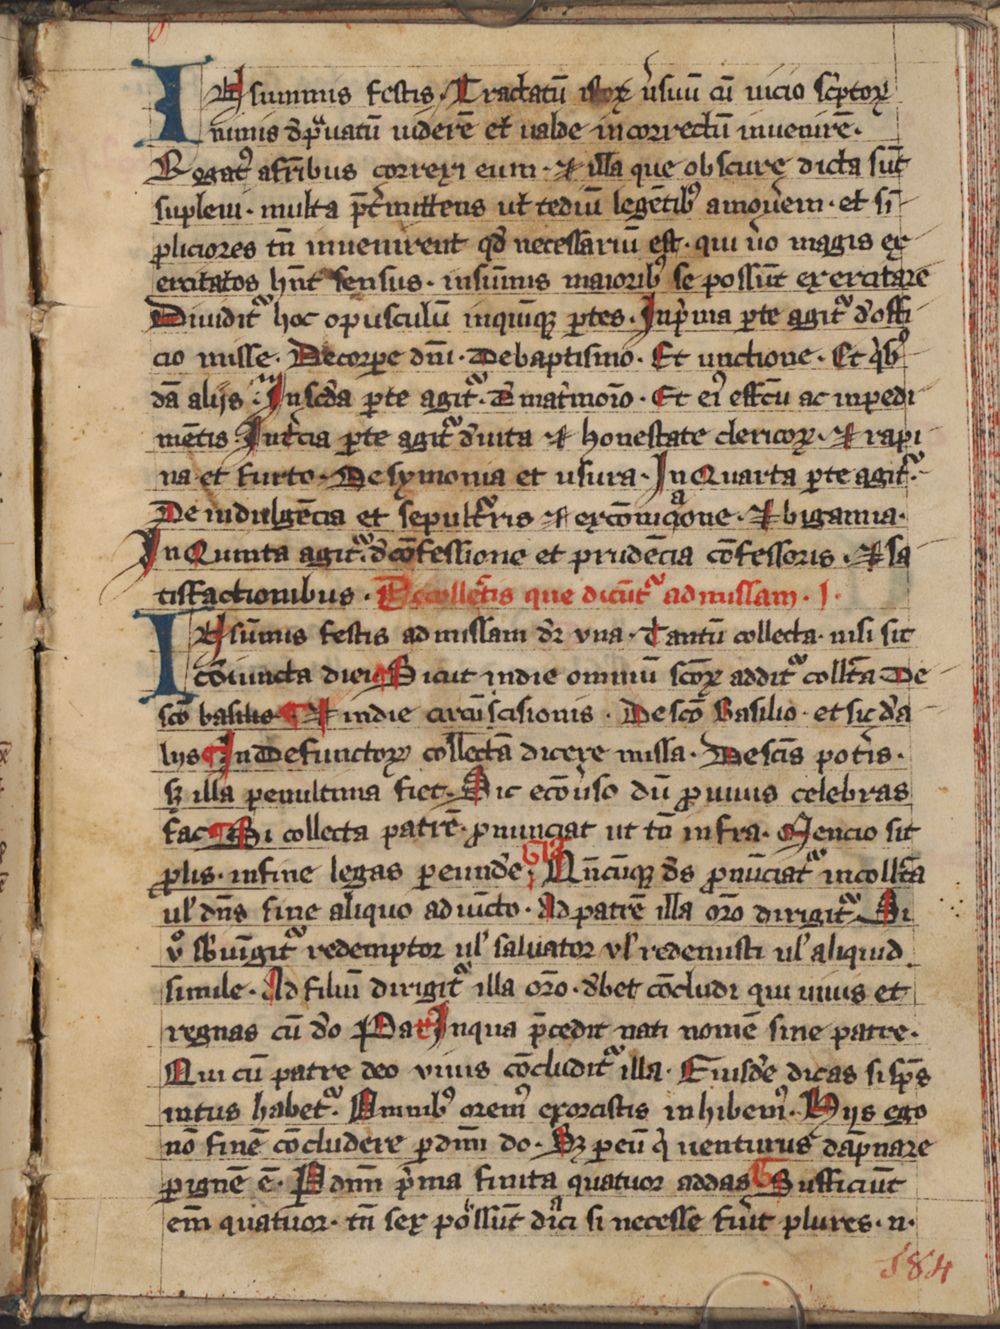 IN summis festis. Tractatū istoꝝ ũsuū cū uicio sc̃ptoꝝ
nimis dep̃uatū uiderē et ualde incorrectū inuenirē.
Rogatꝰ afr̃ibus correxi eum. ⁊ illa que obscure dicta sūt
supleui. multa p̃t̃mittens ut tediū legētibꝰ amoũem. et sī
pliciores tn̄ inuenirent qd̃ necessariū est. qui ũo magis ex
ercitatos hn̄t sensus. insūmis maioribꝰ se possūt exercitare
Diuidit᷑ hoc opusculū inquīqꝫ ꝑtes. Inp̃ma ꝑte agit᷑ d̃offi
cio misse. Decorꝑe dn̄i. Debaptismo. Et unctione. Et q̃bꝰ
dā alijs. Insc̃da ꝑte agit᷑. D̃ mat̃moīo. Et eiꝰ effc̄u ac inpedi
mētis. Int̃cia ꝑte agit᷑ d̃uita ⁊ honestate clericoꝝ. ⁊ rapi
na et furto. De symonia et usura. In Quarta ꝑte agit᷑.
De indulgēcia et sepult᷑ris ⁊ excōmūicac̃one. ⁊ bigamia.
In Quinta agit᷑. d̃cōfessione et prudēcia cōfessoris. ⁊ sa
tisfactionibus. Decollēctis que dicūt᷑ admissam. I.
IN sūmis festis ad missam dr̄ vna. Tantū collecta. nisi sit
cōiuncta diei ¶ Sicut indie omniū sc̄oꝝ addit᷑ collc̃ta De
sc̄o basilio ¶ ⁊ indie circūscisionis. Desc̄o Basilio. et sic d̃a
lijs ¶ In Defunctoꝝ collectā dicere missa. Desc̄is poteris.
sꝫ illa penultima fiet. Sic ecōũso dū ꝓ uiuis celebras
fac ¶ Si collecta patrē. ꝓnunciat ut tū infra. Mencio sit
ꝓlis. infine legas ꝑ eunde. Qn̄cūqꝫ ds̄ ꝓnūciat᷑ incollc̃ta
ul' dn̄s sine aliquo adiūcto. Ad patrē illa or̄o dirigit᷑. Si
ṽo sb̃iūgit᷑ redemptor ul' saluator vl' redemisti ul' aliquid
simile. Ad filiū dirigit᷑ illa or̄o. d̃bet cōcludi qui uiuis et
regnas cū d̃o Pat̃ Inqua p̃cedit nati nomē sine patre.
Qui cū patre deo viuis cōcludit᷑ illa. Eiusdē dicas si sps̄
intus habet᷑. Omnibꝰ oremꝰ exorcistis inhibemꝰ. Hijs ego
nō finē cōcludere ꝑ dnm̄ do. Sꝫ ꝑ eū q̃ uenturus dāpnare
ꝑ ignē ē. P dnm̄ p̃ma finita quatuor addas ¶ Sufficiūt
em̄ quatuor. tn̄ sex possūt dici si necesse fũit plures. n.
184